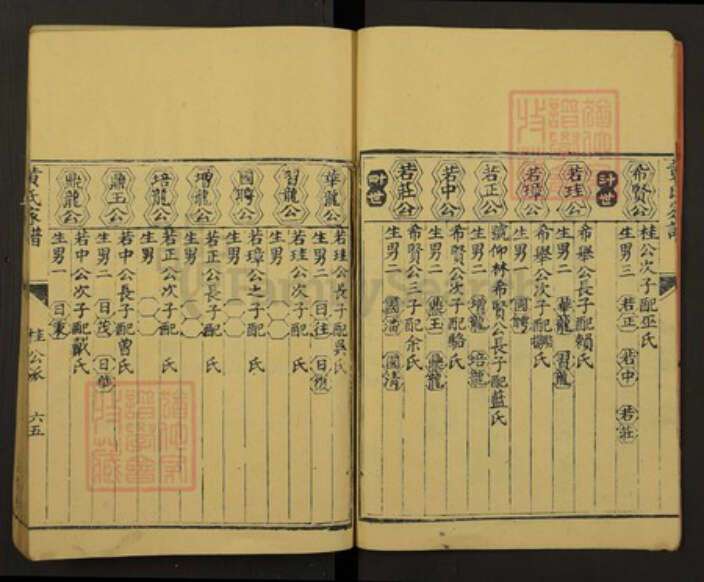 希賢公
桂公次子配巫氏
生男三 若正 若中 若莊
若珪公
希舉公長子配賴氏
生男二 華龍 習龍
若璋公
希舉公次子配
生男一 國聘
若正公
號仰林希賢公長子配藍氏
生男二 增龍 培龍
若中公
希賢公次子配駱氏
生男二 鼎玉 鼎龍
若莊公
希賢公三子配余氏
生男二 國 國清
華龍公
若珪公長子配吳氏
生男二 日往 日
習龍公
若珪公次子配 氏
生男
國聘公
若璋公之子配 氏
生男
增龍公
若正公長子配 氏
生男
培龍公
若正公次子配 氏
生男
鼎玉公
若中公長子配曾氏
生男二 日茂 日
鼎龍公
若中公次子配戴氏
生男一 日
黃氏家譜
桂公派
六五